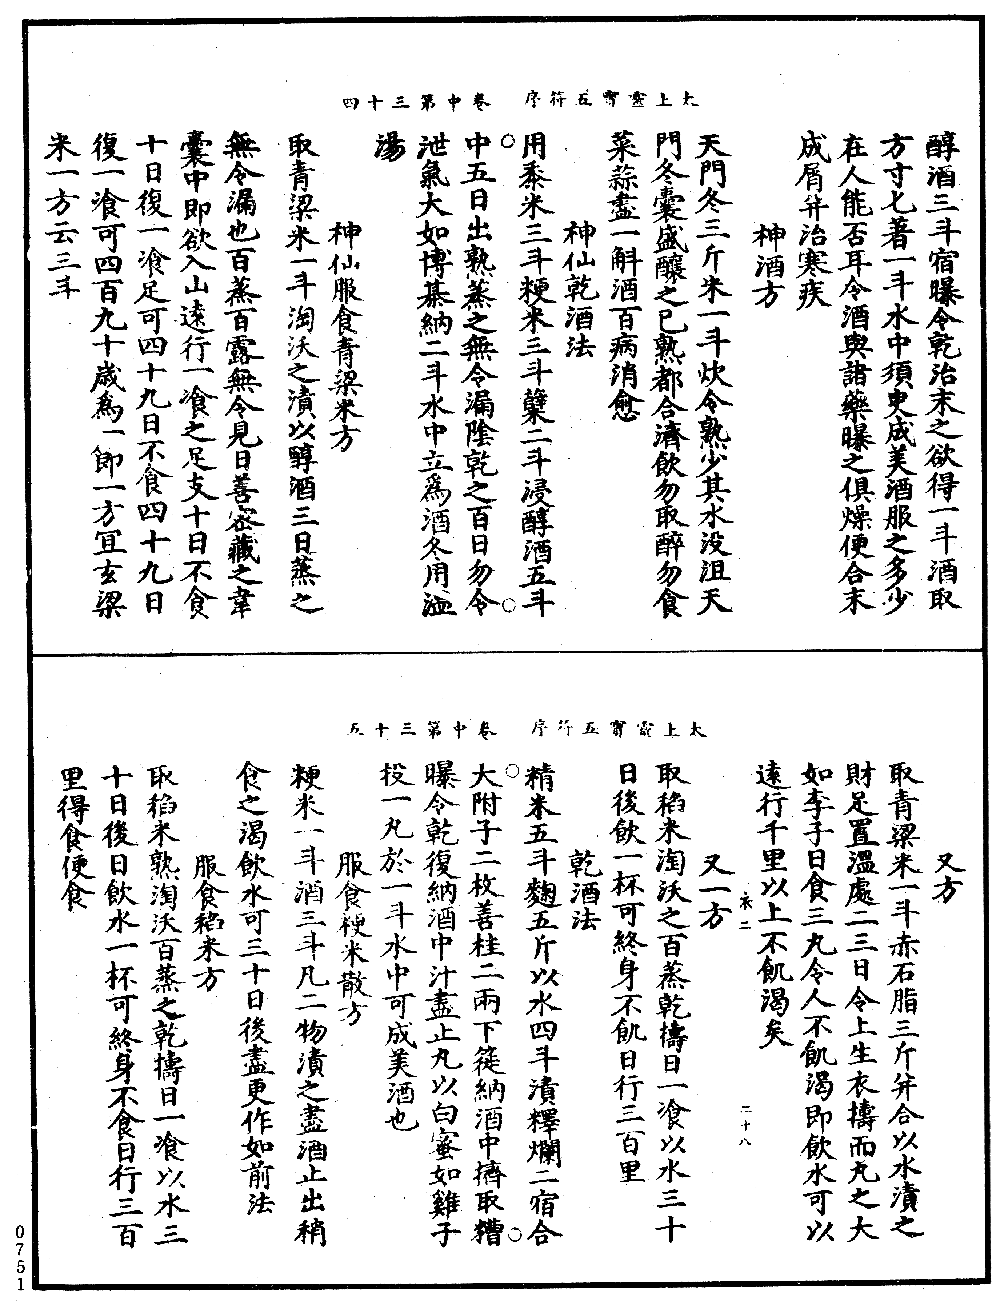 太上靈寶五符序　卷中第三十四
醇酒三斗宿曝令乾治末之欲得一斗酒取
方寸匕著一斗水中須臾成美酒服之多少
在人能否耳令酒與諸藥曝之俱燥便合末
成屑并治寒疾
神酒方
天門冬三斤米一斗炊令熟少其水没沮天
門冬囊盛釀之已熟都合濟飲勿取醉勿食
菜蒜盡一斛酒百病消愈
神仙乾酒法
用黍米三斗粳米三斗糵二斗浸醇酒五斗
中五日出熟蒸之無令漏陰乾之百日勿令
泄氣大如博棊納二斗水中立為酒冬用溫
湯
神仙服食青粱米方
取青粱米一斗淘沃之漬以醇酒三日蒸之
無令漏也百蒸百露無令見日善密藏之韋
囊中即欲入山遠行一飡之足支十日不食
十日復一飡足可四十九日不食四十九日
復一飡可四百九十歲為一節一方宜玄粱
米一方云三斗
太上靈寶五符序　卷中第三十五
又方
取青粱米一斗赤石脂三斤并合以水漬之
財足置溫處二三日令上生衣擣而丸之大
如李子日食三丸令人不飢渴即飲水可以
遠行千里以上不飢渴矣
衣二　二十八
又一方
取稻米淘沃之百蒸乾擣日一飡以水三十
日後飲一杯可終身不飢日行三百里
乾酒法
精米五斗麴五斤以水四斗漬釋爛二宿合
大附子二枚善桂二兩下簁納酒中擠取糟
曝令乾復納酒中汁盡止丸以白蜜如雞子
投一丸於一斗水中可成美酒也
服食粳米散方
粳米一斗酒三斗凡二物漬之盡酒止出稍
食之渴飲水可三十日後盡更作如前法
服食稻米方
取稻米熟淘沃百蒸之乾擣日一飡以水三
十日後日飲水一杯可終身不食日行三百
里得食便食
0751